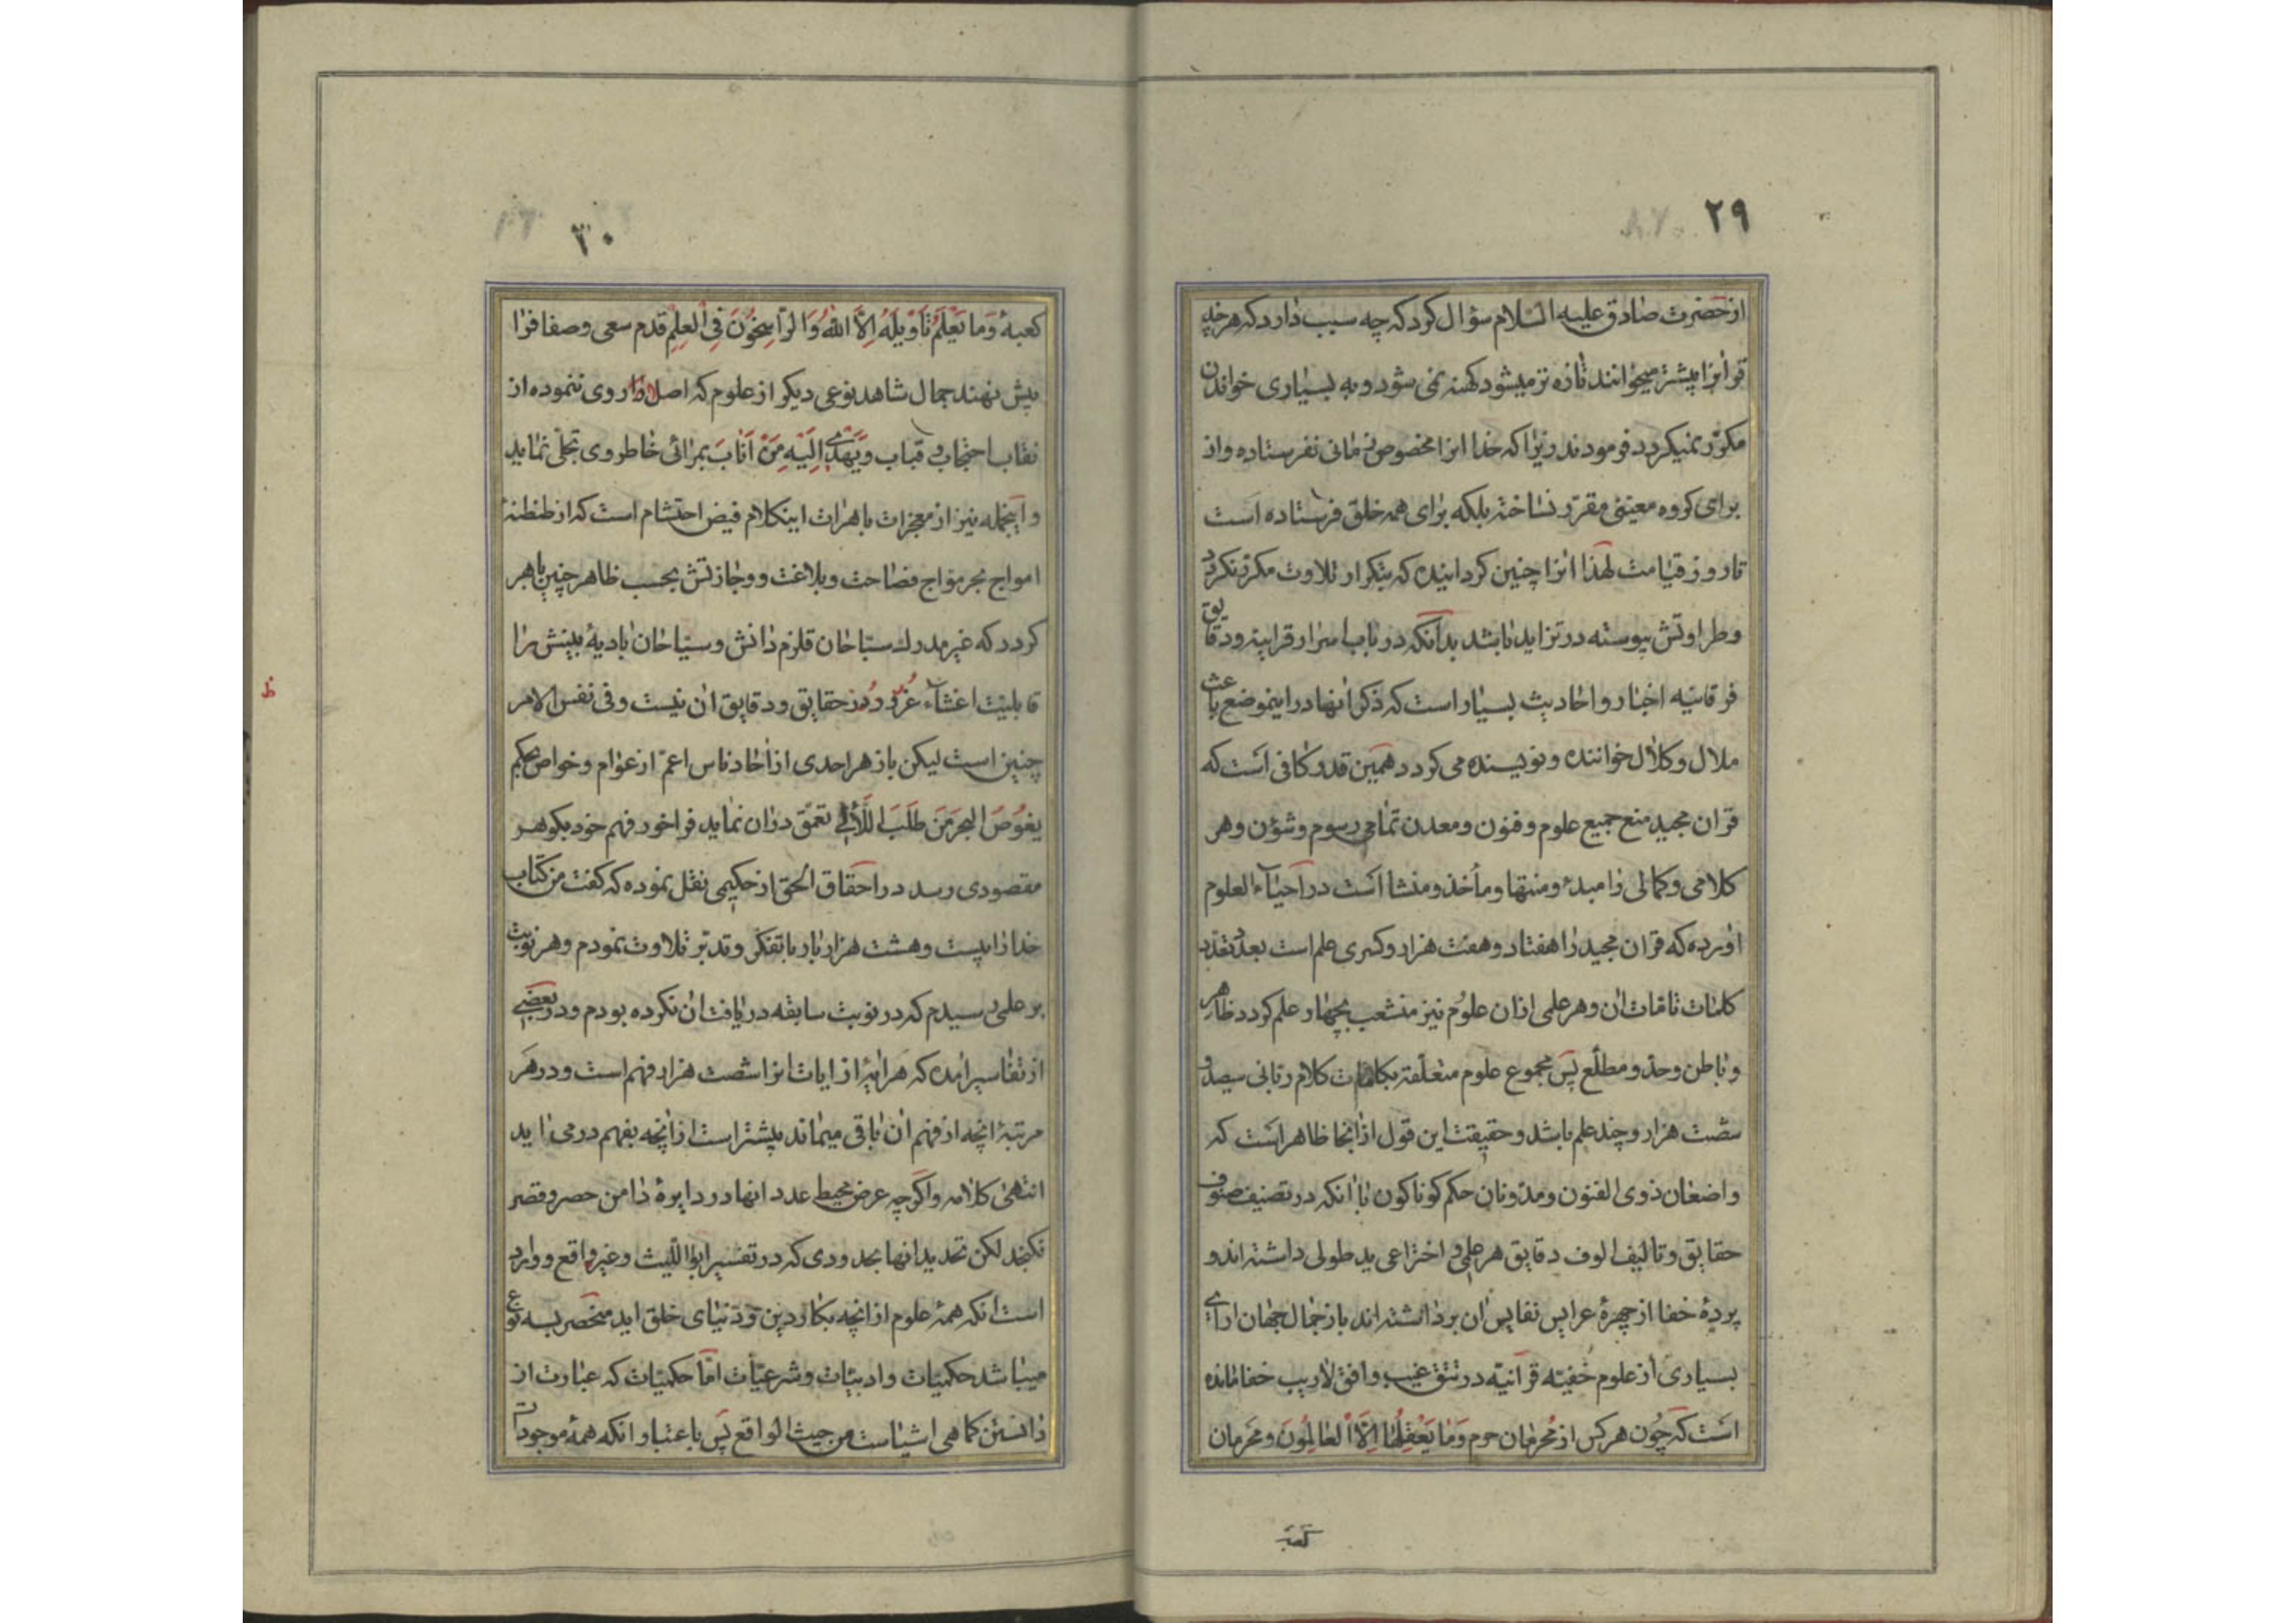 ٢٩
از حضرت صادق علیه السلام سؤال کرد که چه سبب دارد که هر چه
قرانرا بیشتر میخوانند تازه تر میشود کهنه نمی شود و به بسیاری خواندن
مکرّر نمیکردد فرمودند زیرا که خدا انرا مخصوص زمانی نفرستاده و از
برای کروه معیّنی مقرّر نساخته بلکه برای همه خلق فرستاده است
تا روز قیامت لهذا انرا چنین کردانیده که بتکرار تلاوت مکرّر نکردد
وطراوتش پیوسته در تزاید باشد بدانکه در باب اسرار قرانیه ودقایق
فرقانیّه اخبار و احادیث بسیار است که ذکر انها در اینموضع باعث
ملال و کلال خواننده و نویسنده می کردد همین قدر کافی است که
قران مجید منبع جمیع علوم وفنون ومعدن تمامی رسوم وشؤن وهر
کلامی وکمالی را مبدء ومنتها ومأخذ ومنشا است در احیاء العلوم
اورده که قران مجید را هفتاد وهفت هزار وکسری علم است بعدد
کلمات تامّات ان وهر علمی از ان علوم نیز منشعب بچهار علم کردد ظاهر
وباطن وحدّ ومطلع پس مجموع علوم متعلّقة بکلمات کلام ربانی سیصد و
شصت هزار وچند علم باشد وحقیقت این قول از انجا ظاهر است که
واضعان ذوی الفنون ومدوّنان حکم کوناکون با انکه در تصنیف صنوف
حقایق وتالیف الوف دقایق هر علمی و اختراعی ید طولی داشته اند و
پردهٔ خفا از چهرهٔ عرایس نفایس ان برداشته اند باز جمال جهان ارای
بسیاری از علوم خفیّه قرانیّه در تتق غیب وافق لاریب خفا مانده
است که چون هر کس از محرمان حرم وَمٰا یَعْقِلُهٰا اِلَّا الْعٰالِمُونَ ومحرمان
کعبهٔ
٣٠
کعبهٔ وَما یَعْلَمُ تَاْوِیلَهُ اِلَّا اللّٰهُ وَالرّٰاسِخُونَ فِی الْعِلْمِ قدم سعی وصفا فرا
پیش نهند جمال شاهد نوعی دیکر از علوم که اصلا روی ننموده از
نقاب احتجاب و قباب وَیَهْدی اِلَیْهِ مَنْ اَنابَ بمرائی خاطر وی تجلّی نماید
واینجمله نیز از معجزات باهرات اینکلام فیض احتشام است که از طنطنهٔ
امواج بحر موّاج فصاحت وبلاغت ووجازتش بحسب ظاهر چنین باهر
کردد که غیر مدرك سبّاحان قلزم دانش وسیّاحان بادیهٔ بینش را
قابلیّت اغتشاء غرر و درر حقایق ودقایق ان نیست وفی نفس الامر
چنین است لیکن باز هر احدی از احاد ناس اعمّ از عوام وخواص بحکم
یَغُوصُ البحرَ مَنْ طَلَبَ اللَّآلی تعمّق در ان نماید فراخور فهم خود بکوهر
مقصودی رسد در احقاق الحق از حکیمی نقل نموده که کفت من کتاب
خدا را بیست وهشت هزار بار با تفکر وتدبّر تلاوت نمودم وهر نوبت
بر علمی رسیدم که در نوبت سابقه دریافت ان نکرده بودم ودر بعضی
از تفاسیر امده که هر ایهٔ از ایات انرا شصت هزار فهم است ودر هر
مرتبهٔ انچه از فهم ان باقی میماند بیشتر است از انچه بفهم در می اید
انتهٰی کلامه واکرچه عرض محیط عدد انها در دایرهٔ دامن حصر وقصر
نکنجد لکن تحدید انها بحدودی که در تفسیر ابو اللّیث وغیره واقع ووارد
است انکه همهٔ علوم از انچه بکار دین ودنیای خلق اید منحصر بسه نوع
میباشد حکمیّات وادبیّات وشرعیّات امّا حکمیّات که عبارت از
دانستن کماهی اشیاست من حیث الواقع پس باعتبار انکه همهٔ موجودات
ظ